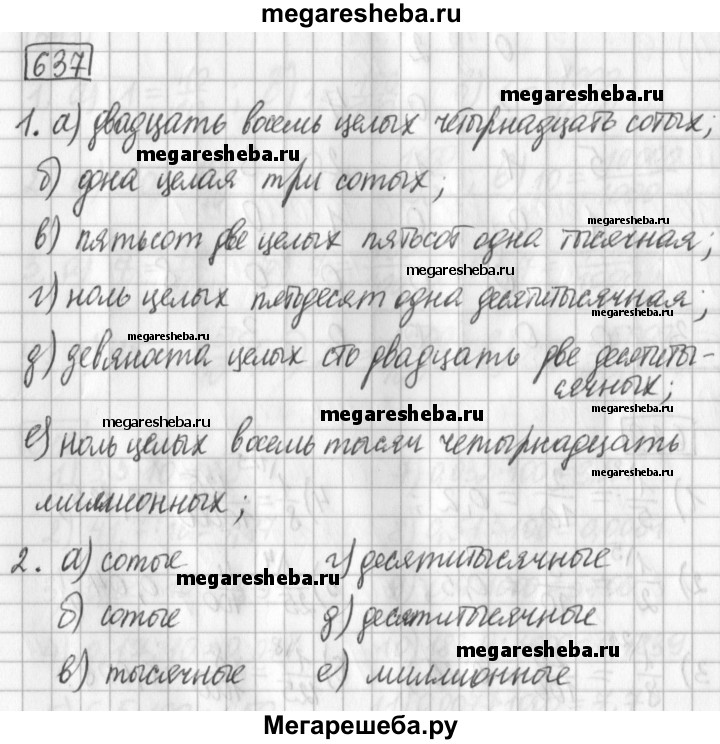 megaresheba.ru
637
megaresheba.ru
1. а) двадцать восемь целых четырнадцать сотых;
megaresheba.ru
б) одна целая три сотых;
megaresheba.ru
в) пятьсот две целых пятьсот одна тысячная;
megaresheba.ru
г) ноль целых пятьдесят одна десятитысячная;
megaresheba.ru
megaresheba.ru
д) девяноста целых сто двадцать две десятиты-
сячных;
megaresheba.ru
megaresheba.ru
megaresheba.ru
е) ноль целых восемь тысяч четырнадцать
megaresheba.ru
миллионных;
2. а) сотые г) десятитысячные
megaresheba.ru
б) сотые д) десятитысячные
megaresheba.ru
в) тысячные е) миллионные
Мегарешеба.ру